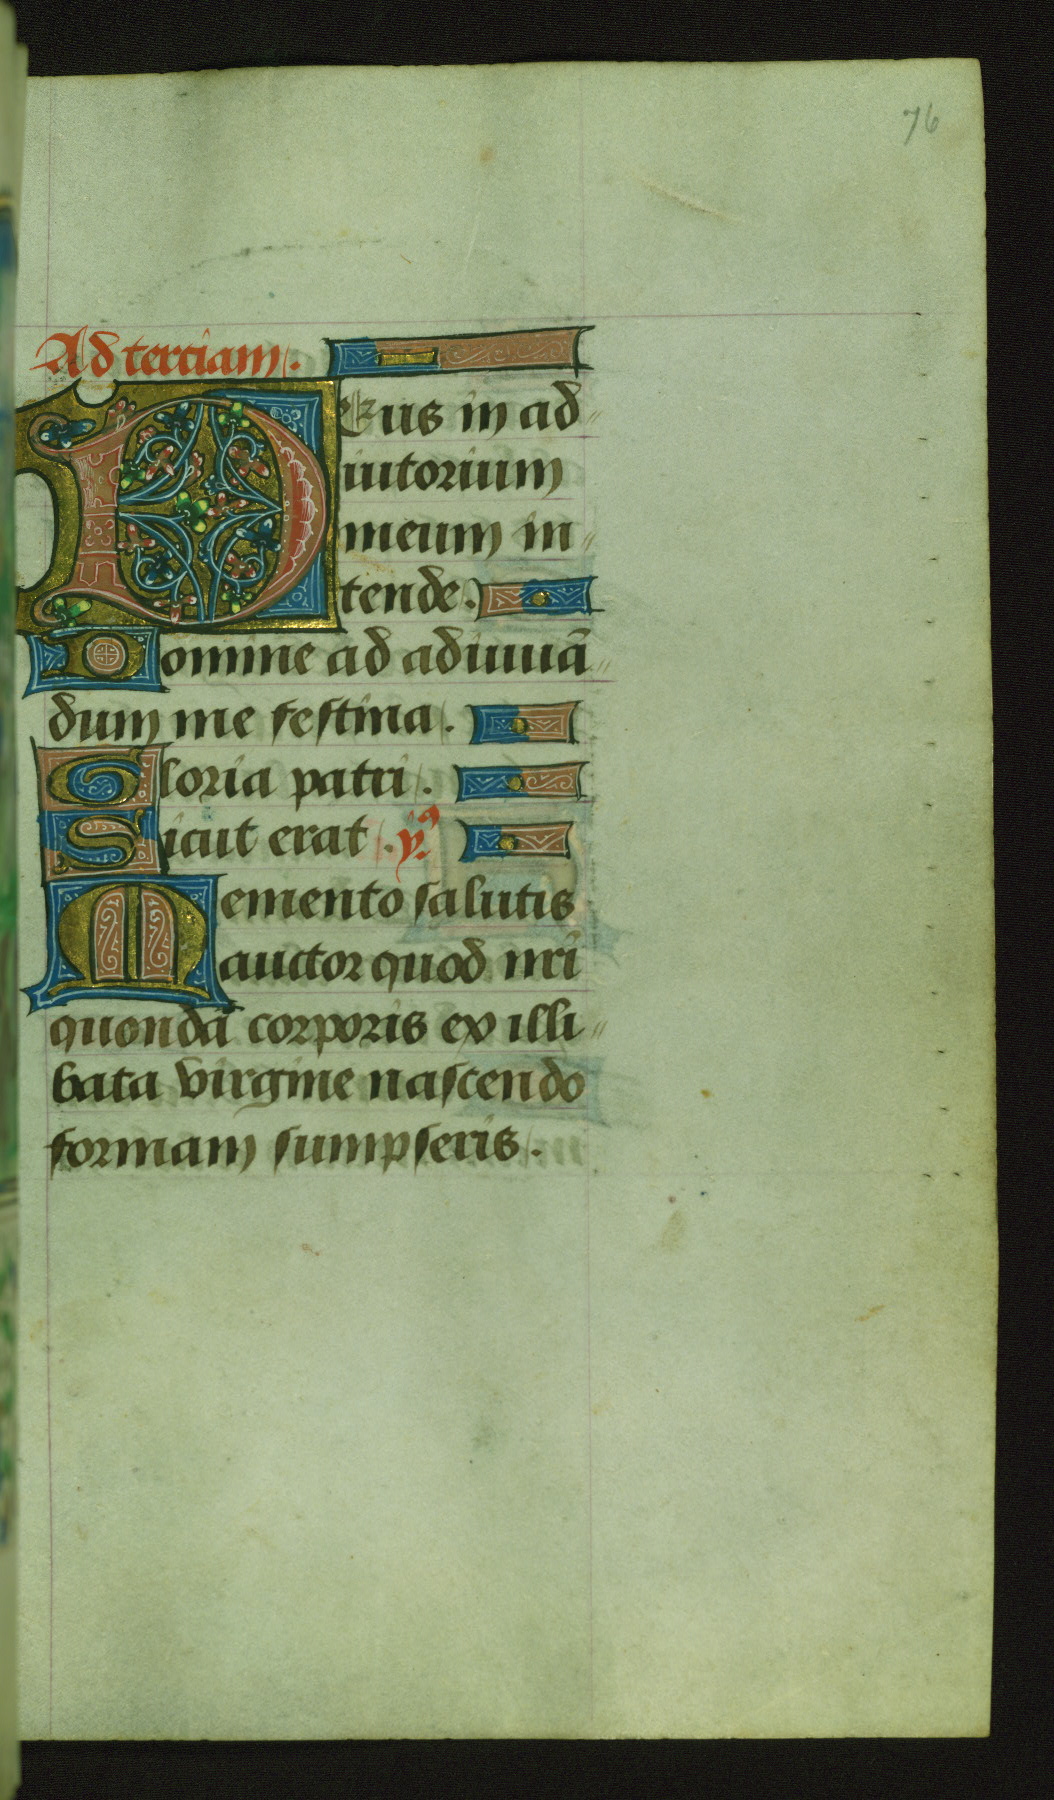 76
Ad terciam.
Deus in ad
iutorium
meum in
tende.
Domine ad adiuuā
dum me festina.
Gloria patri.
Sicut erat. yꝰ.
Memento salutis
auctor quod nr̄i
quondā corporis ex illi
bata virgine nascendo
formam sumpseris.